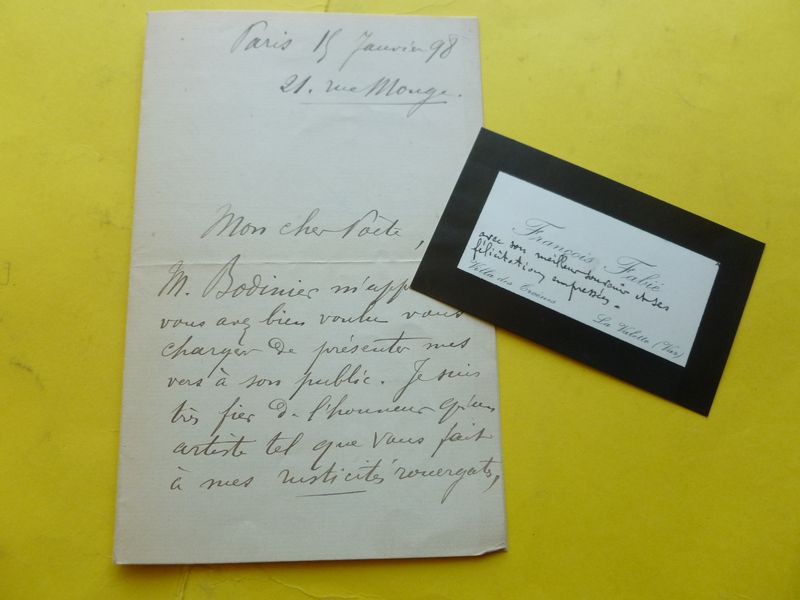 Paris 15 Janvier 98
21. rue Monge.
Mon cher Poète,
M. Bodinier m'app
vous avez bien voulu vous
charger de présenter mes
vers à son public. Je suis
très fier de l'honneur qu'un
artiste tel que vous fait
à mes rusticités rouergates,
François Fabié
avec son meilleur souvenir et ses
félicitations empressées.
Villa des Troènes
La Valette (Var)